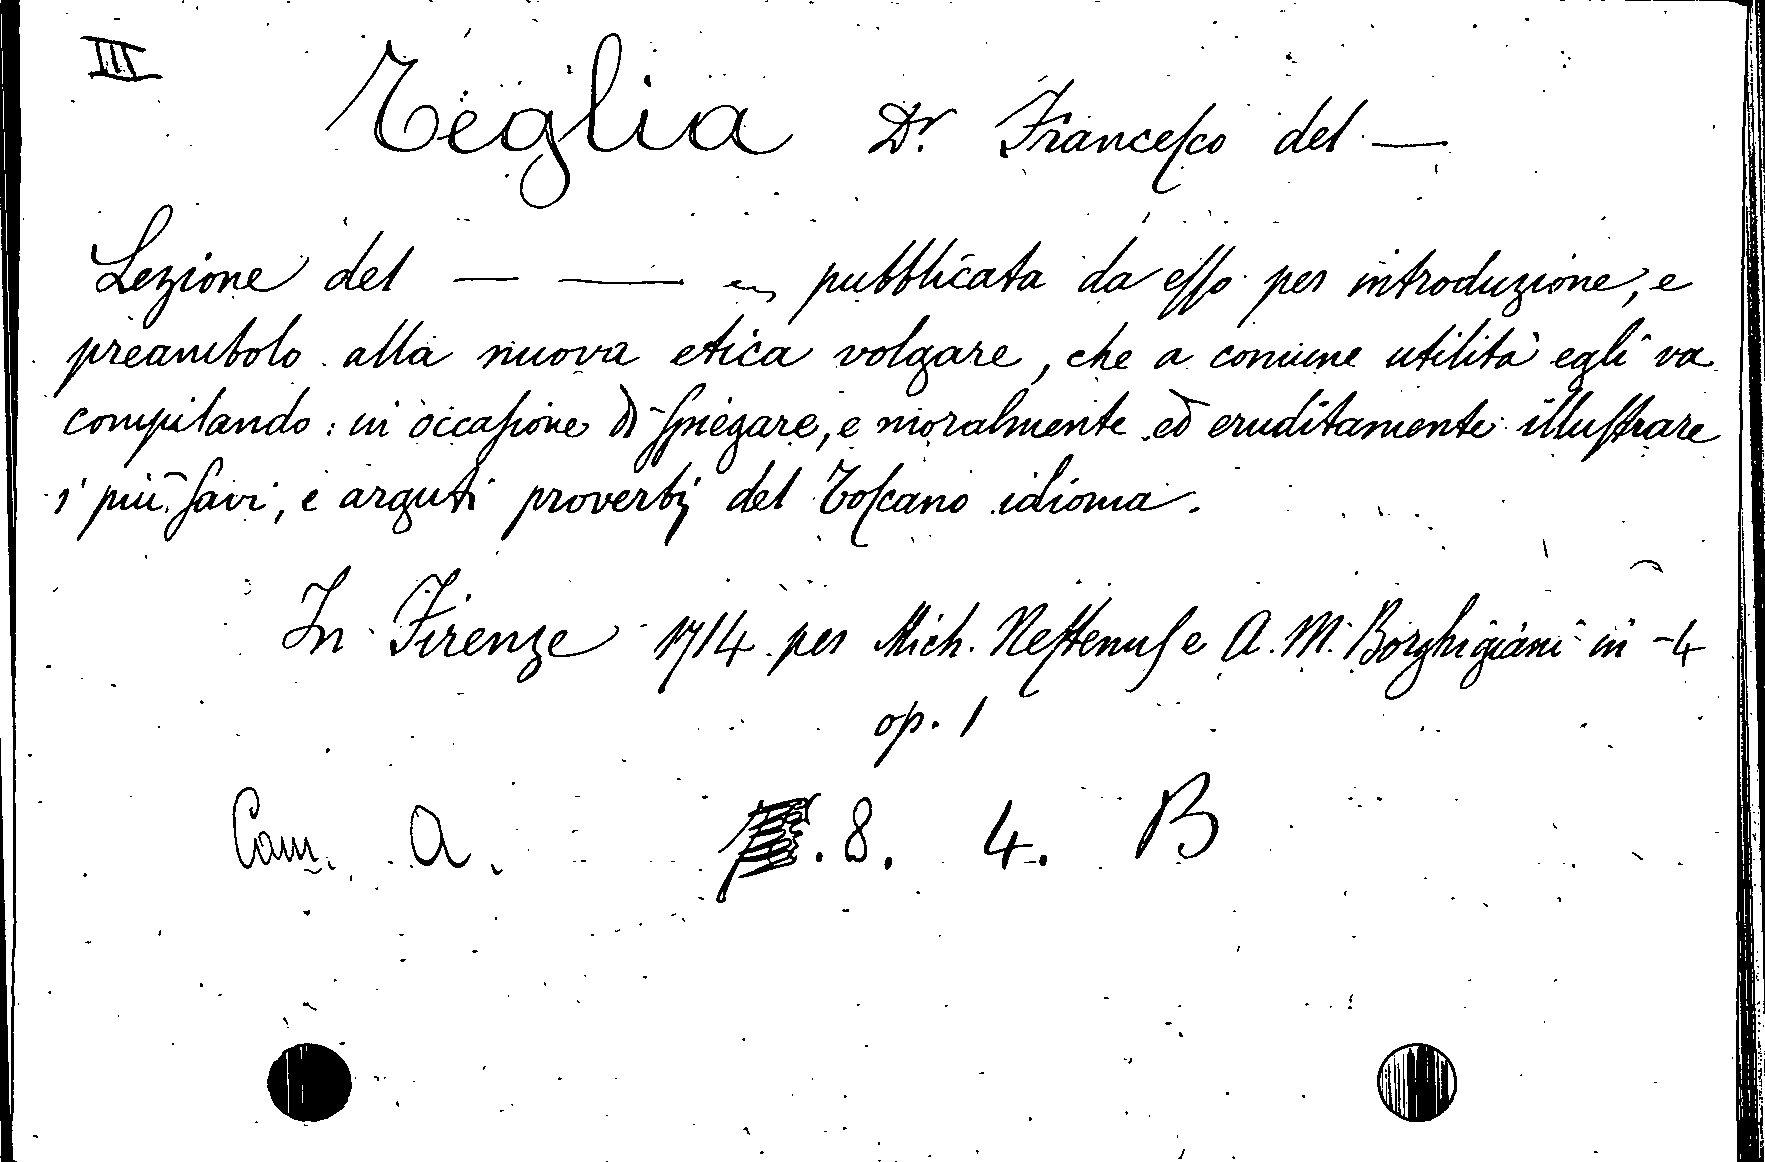 III
Teglia Dr. Franceſco del —
Lezione del — — pubblicata da eſſo per introduzione, e
preambolo alla nuova etica volgare, che a comune utilità egli va
compilando: in occaſione di ſpiegare, e moralmente ed eruditamente illuſtrare
i più ſavi, e arguti proverbj del Toſcano idioma.
In Firenze 1714 per Mich. Neſtenuſ e A. M. Borghigiani in -4
op. 1
Cam. A. . 8. 4. B